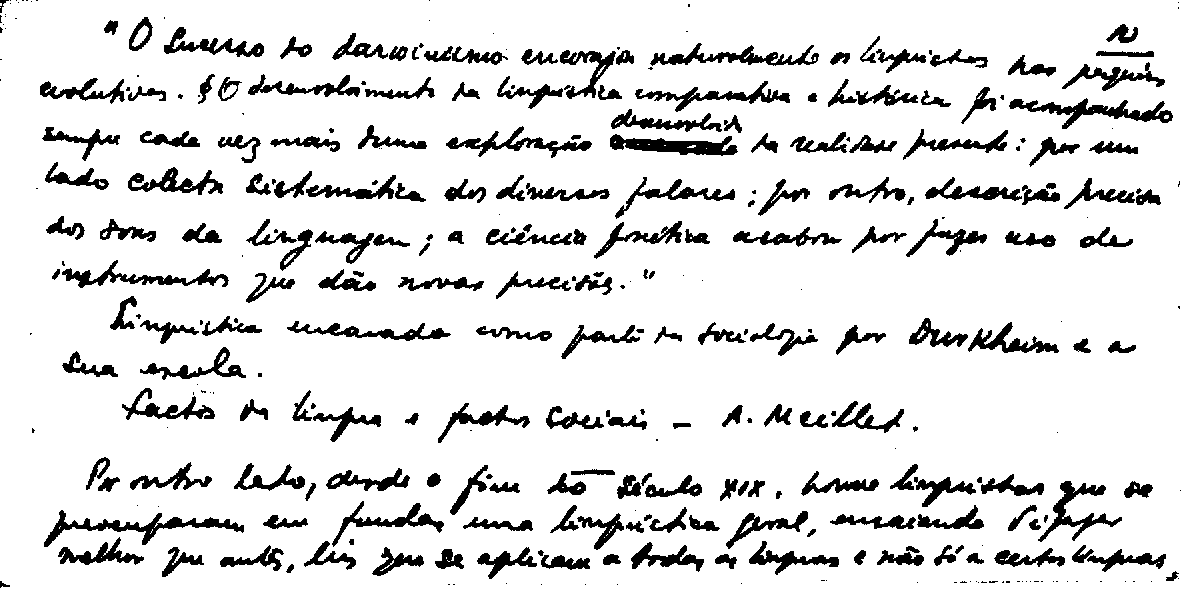 10
"O sucesso do darwinismo encoraja naturalmente os linguistas nas pesquisas
evolutivas. § O desenvolvimento da linguística comparativa e histórica foi acompanhado
sempre cada vez mais duma exploração desenvolvida da realidade presente: por um
lado colecta sistemática dos diversos falares; por outro, descrição precisa
dos sons da linguagem; a ciência fonética acabou por fazer uso de
instrumentos que dão novas precisões."
Linguística encarada como parte da sociologia por Durkheim e a
sua escola.
Factos da língua e factos sociais – A. Meillet.
Por outro lado, desde o fim do século XIX, houve linguistas que se
preocuparam em fundar uma linguística geral, ensaiando
melhor que antes, leis que se aplicam a todas as línguas e não só a certas línguas,